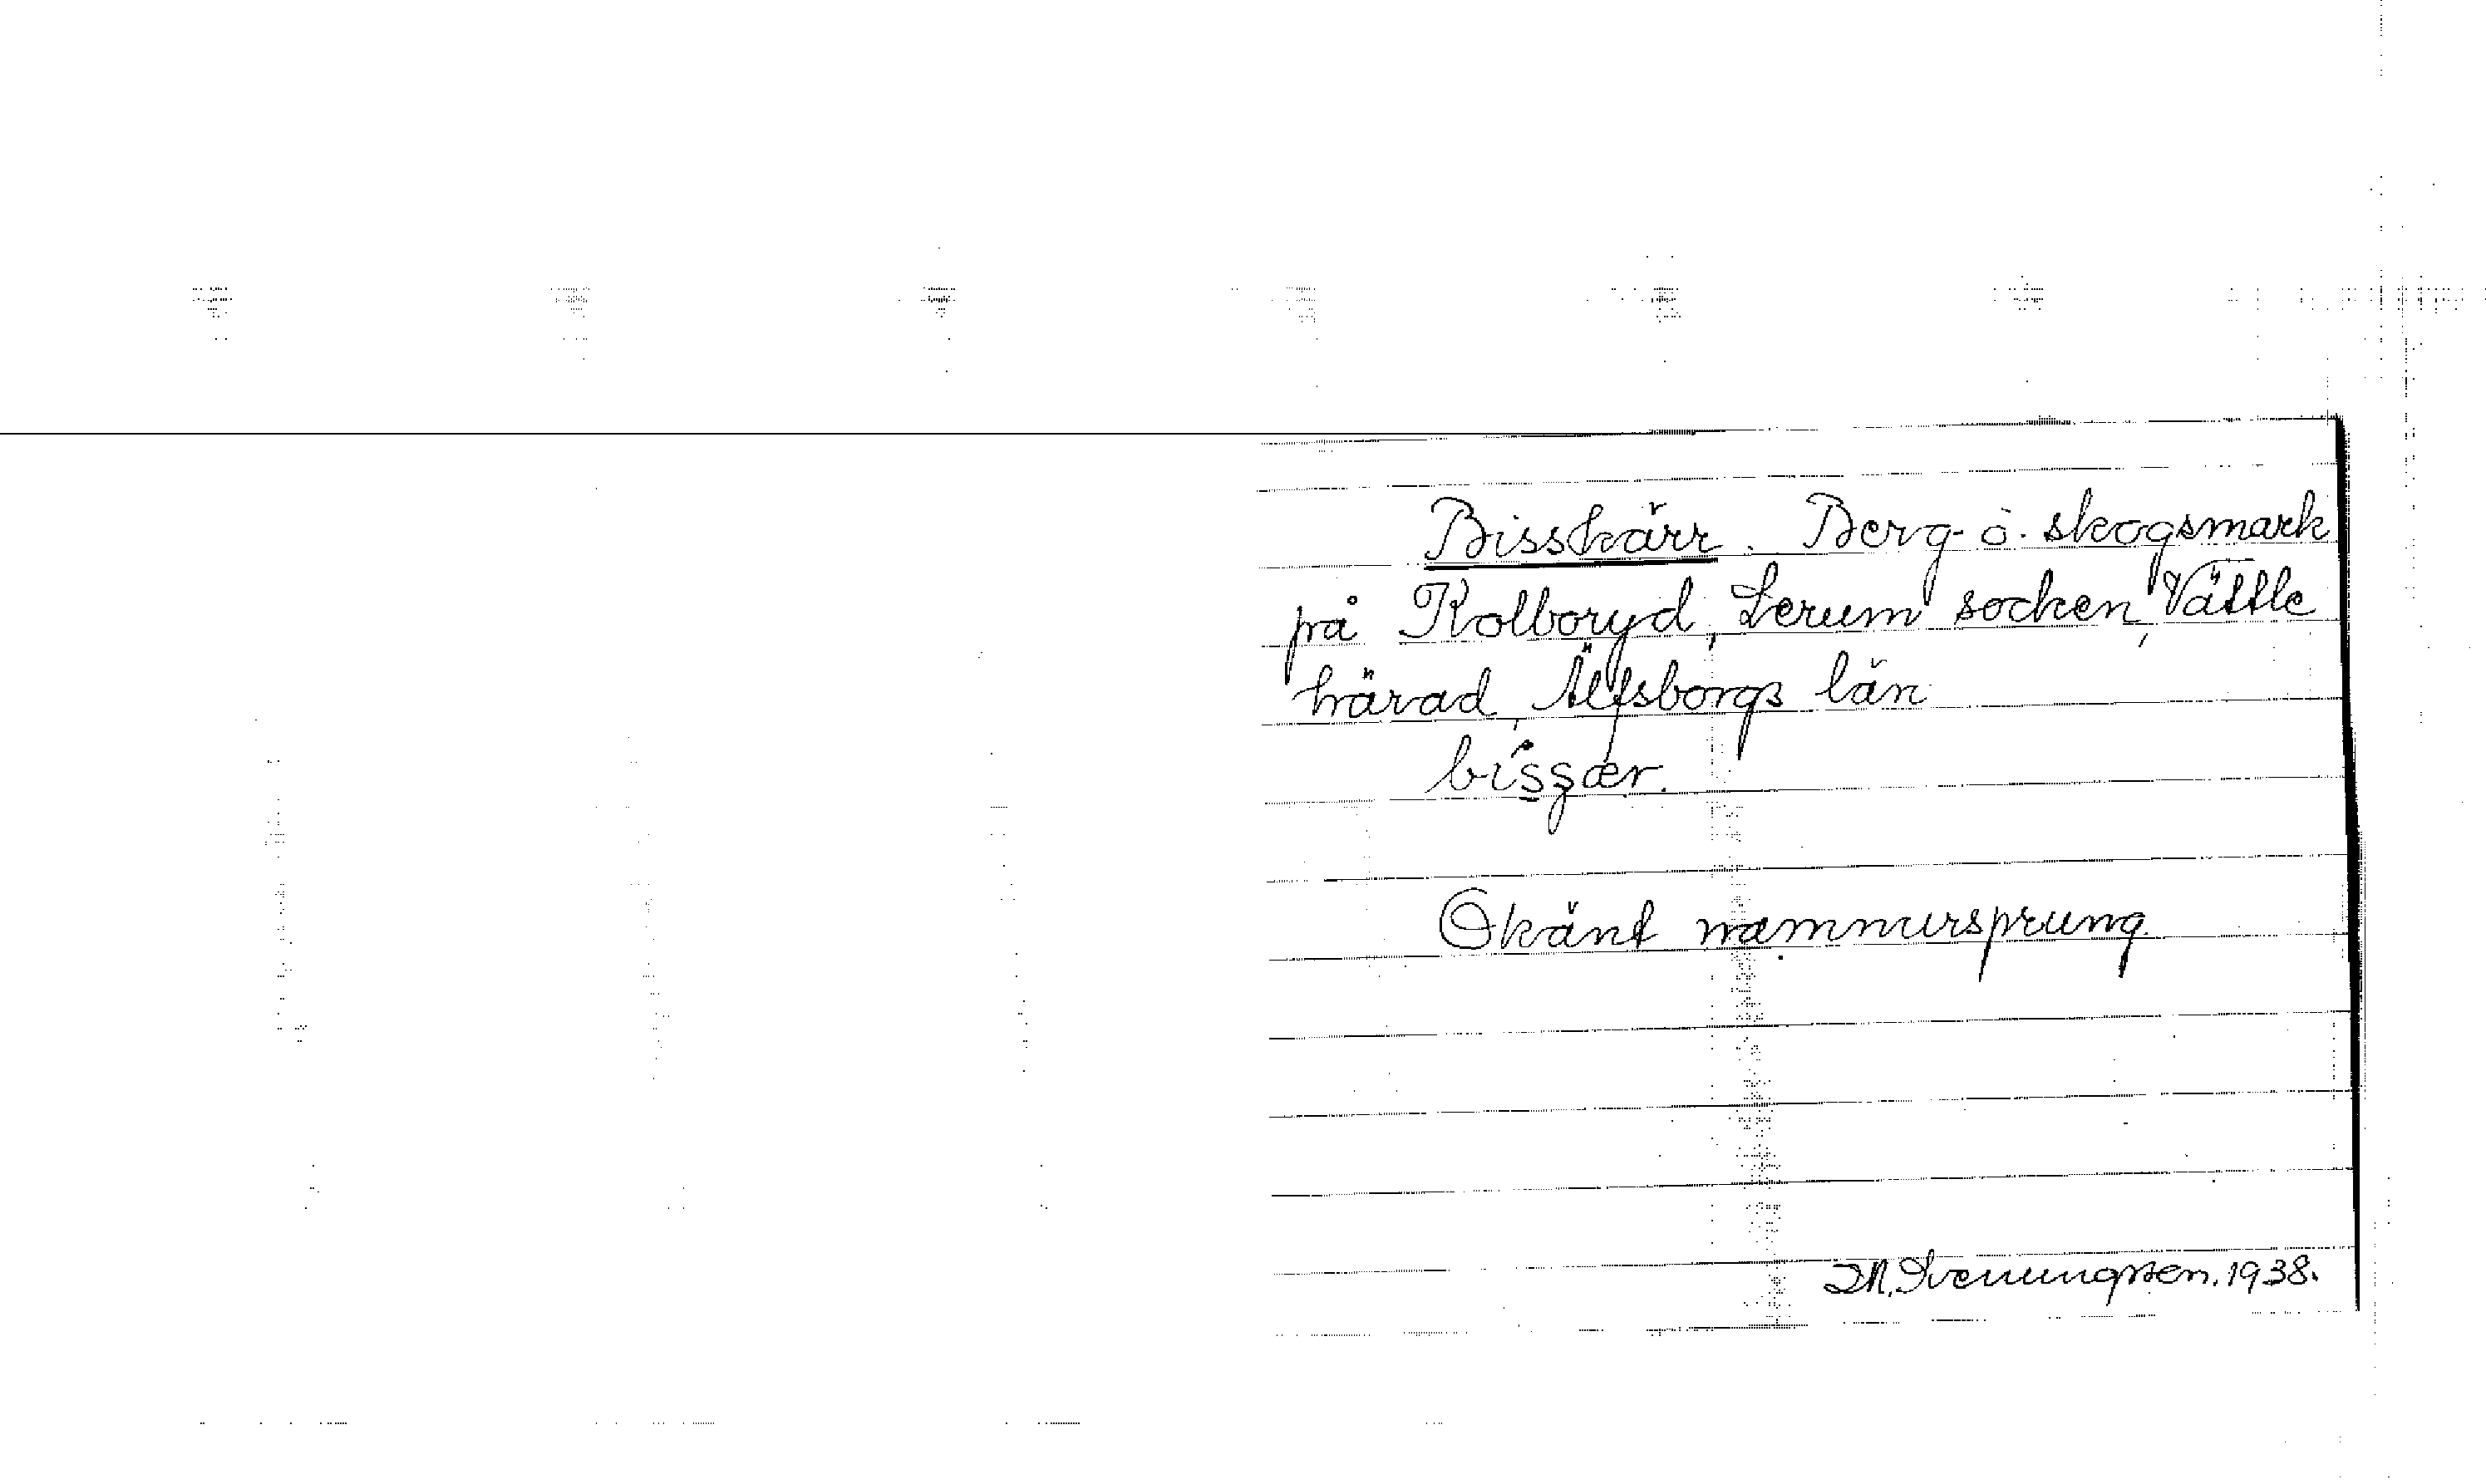 Bisskärr. Berg- o. skogsmark
på Kolboryd, Lerum socken, Vättle
härad, Älfsborgs län
Okänt namnursprung
M. Svenungsson. 1938.